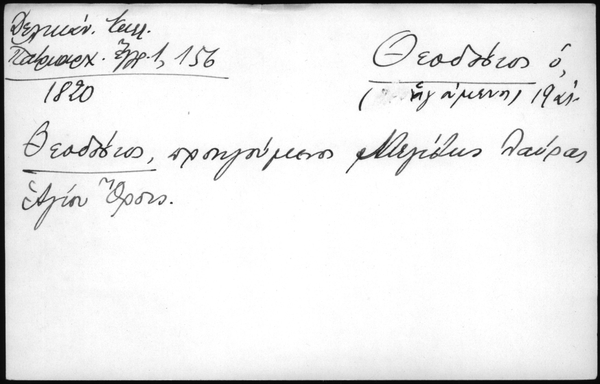 Δελικάν. Καλ.
Πατριαρχ. Ἔγγρ. 1, 156
1820
Θεοδόσιος ὁ,
(ἡγούμενος) 19 αι.
Θεοδόσιος, προηγούμενος Μεγίστης Λαύρας
Ἁγίου Ὄρους.